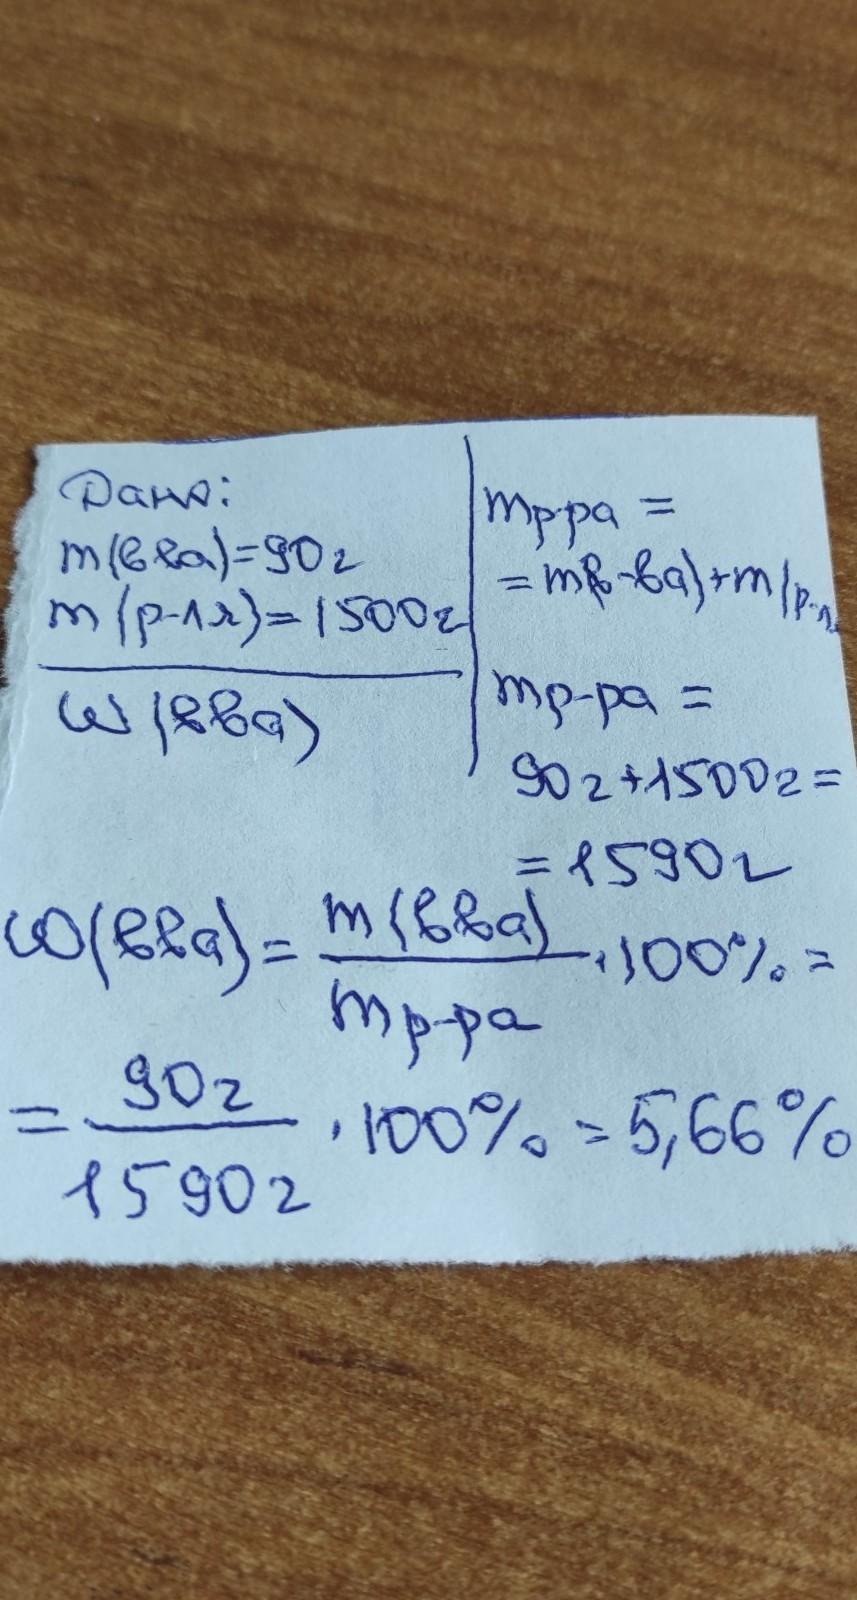 Дано:
m(вва)=90г
m(р-ля)=1500г
ω(вва)
mр-ра =
=m(в-ва)+m(р-л
mр-ра =
90г+1500г=
=1590г
ω(вва)= m(вва)/mр-ра ·100%=
= 90г/1590г ·100%=5,66%